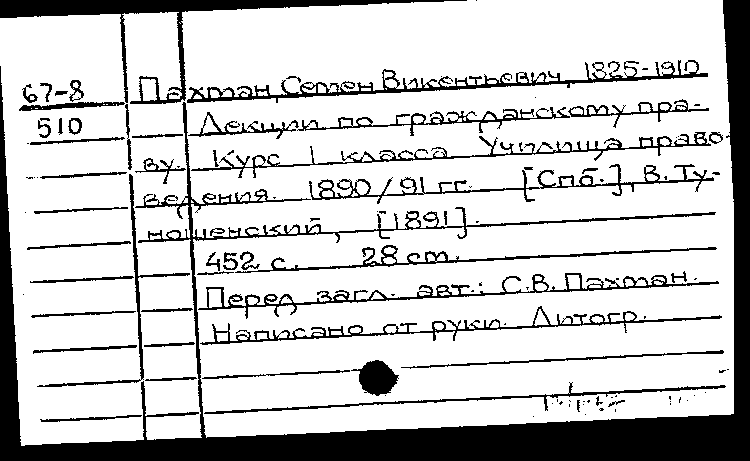 67-8 Пахман, Семен Викентьевич, 1825-1910
510 Лекции по гражданскому пра-
ву. Курс I класса Училища право-
ведения. 1890/91 гг. [Спб.], В. Ту-
ношенский, [1891].
452 с. 28 см.
Перед загл. авт.: С.В. Пахман.
Написано от руки. Литогр.